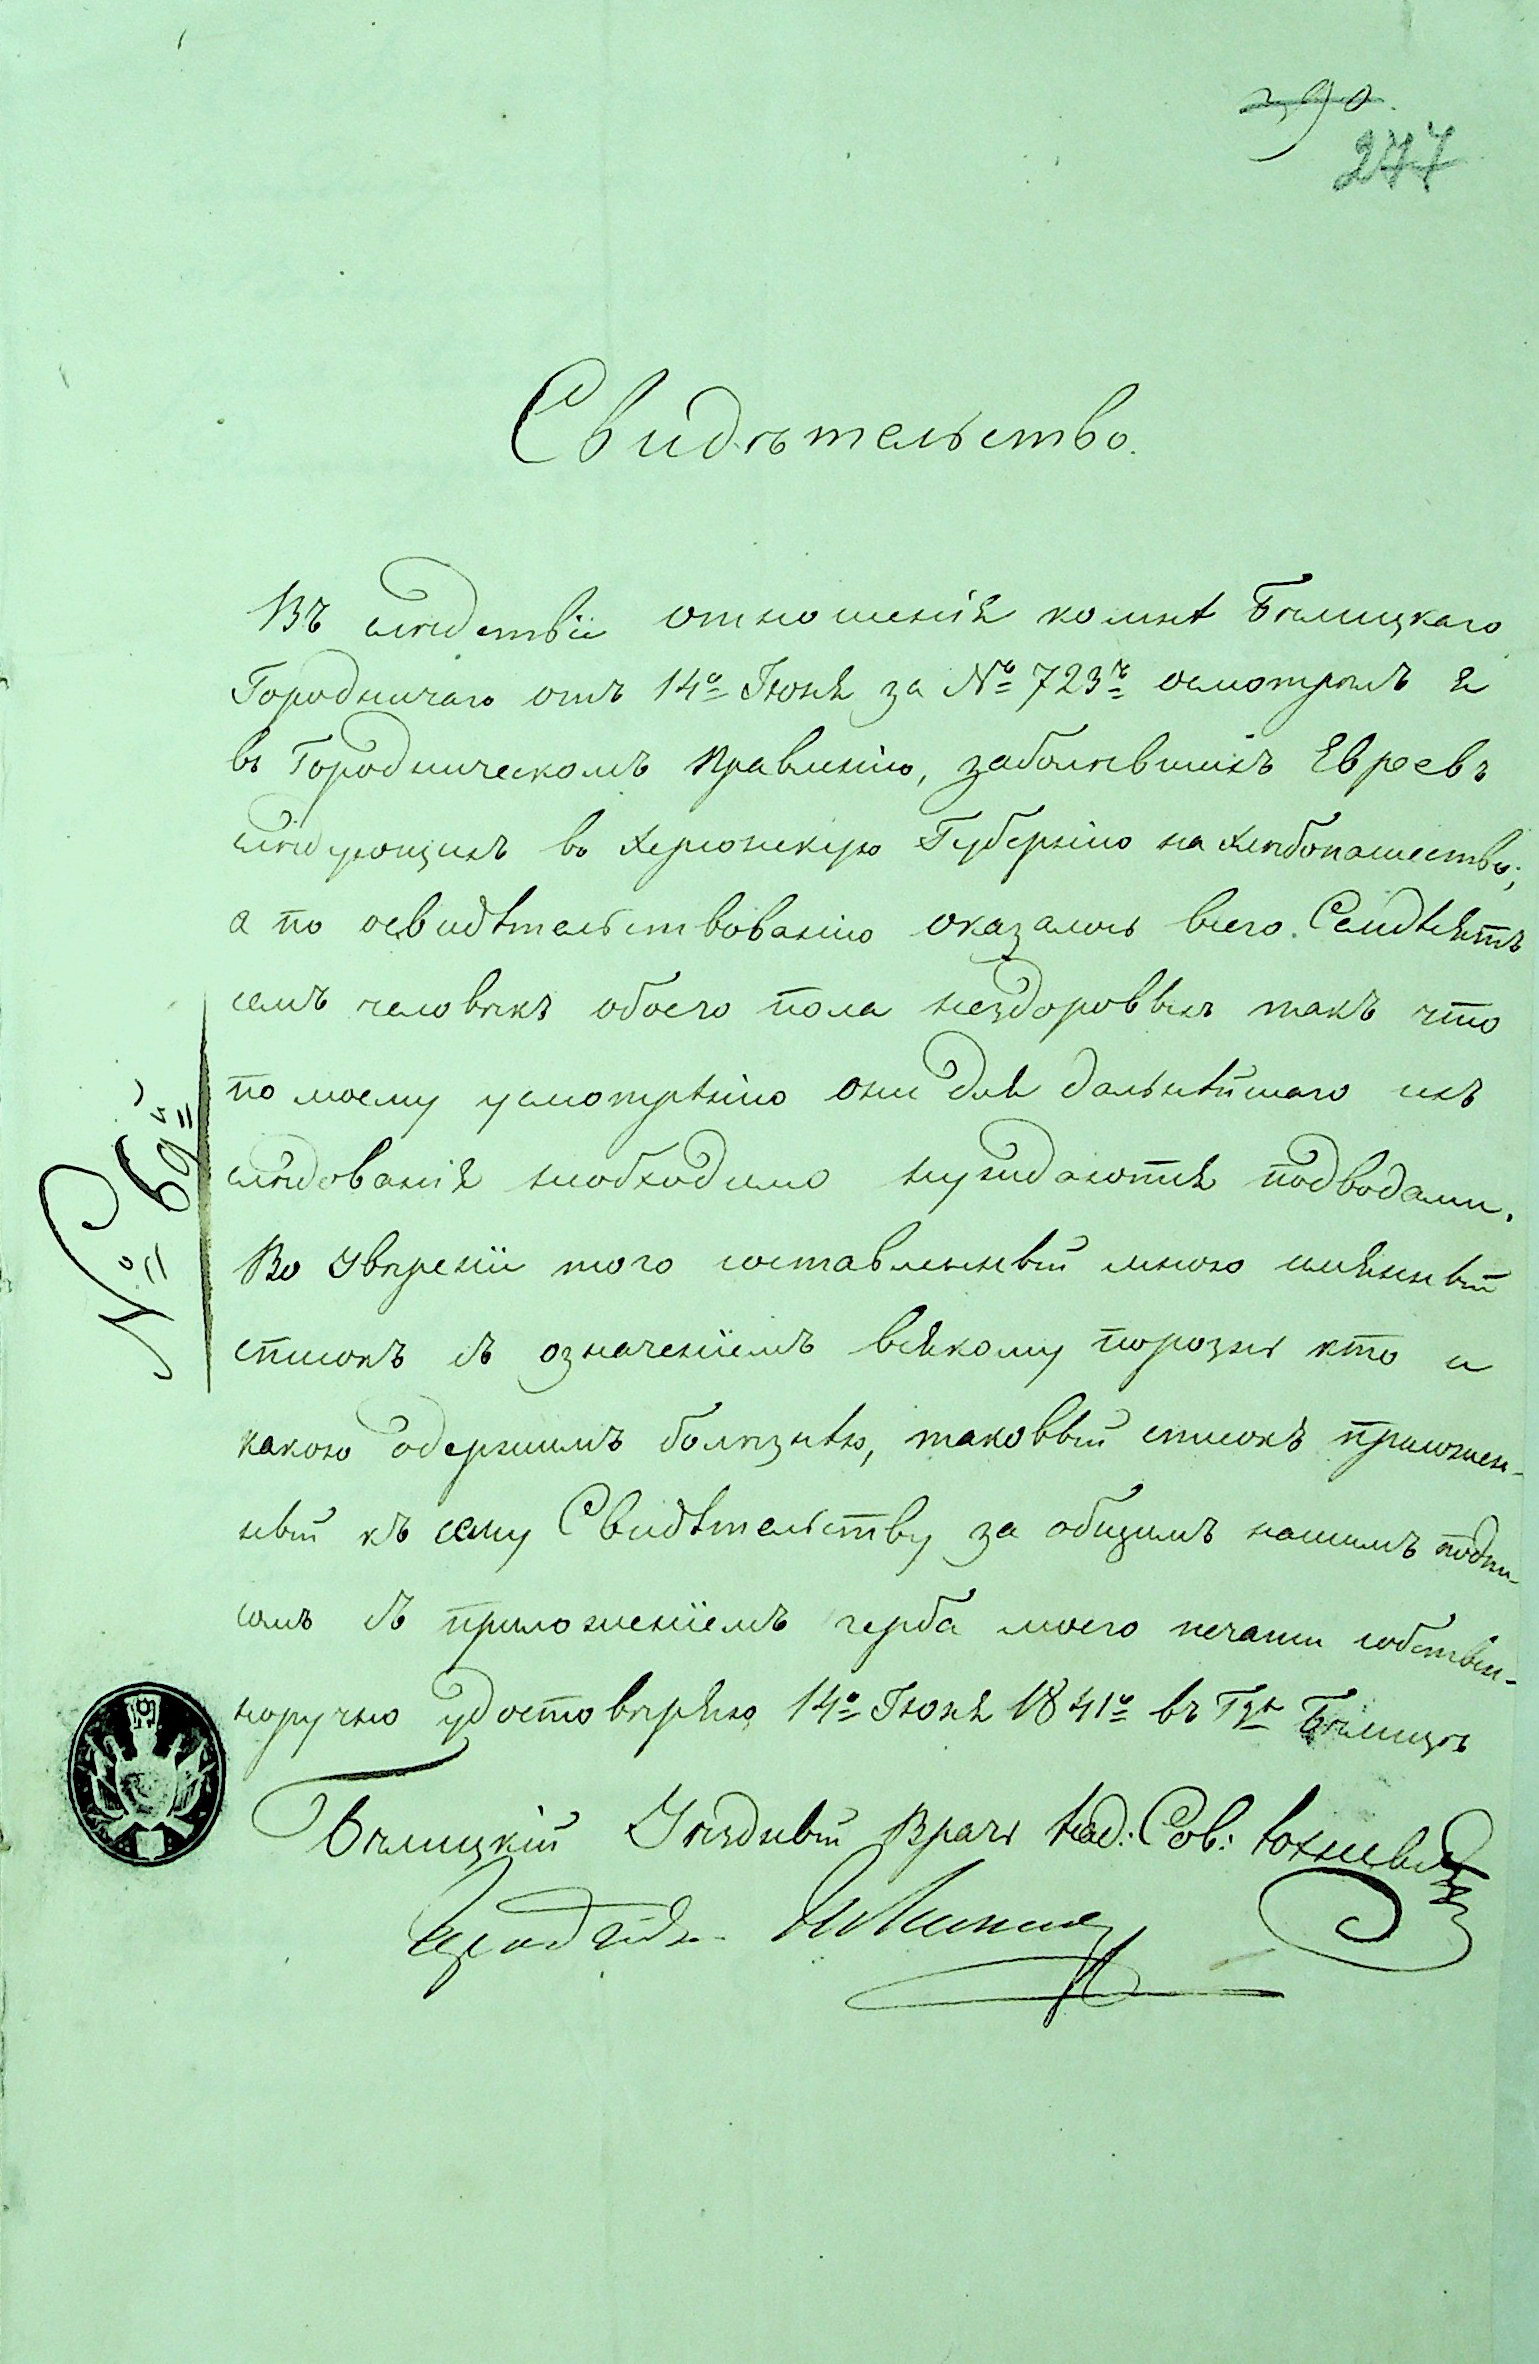 290.
277
Свидѣтельство.
Въ слѣдствіи отношенія ко мнѣ Бѣлицкаго
Городничаго отъ 14го Іюня за № 723мъ осмотрѣлъ я
въ Городническомъ Правленію, заболѣвшихъ Евреевъ
слѣдующихъ въ Херсонскую Губернію на хлѣбопашество;
а по освидѣтельствованію оказалось всего Семдѣсятъ
семъ человѣкъ обоего пола нездоровыхъ такъ что
по моему усмотрѣнію они для дальнѣйшаго ихъ
слѣдованія необходимо нуждаются подводами.
Во увѣреніи того составленный мною имянный
списокъ съ означеніемъ всякому порознь кто и
какою одержимъ болѣзнѣю, таковый списокъ приложен-
ный къ сему Свидѣтельству за общимъ нашимъ подпи-
сомъ съ приложеніемъ герба моего печати собствен-
норучно удостовѣряю 14го Іюня 1841го въ Гдѣ Бѣлицѣ
№ 69й
Бѣлицкій Уѣздный Врачь Над: Сов: